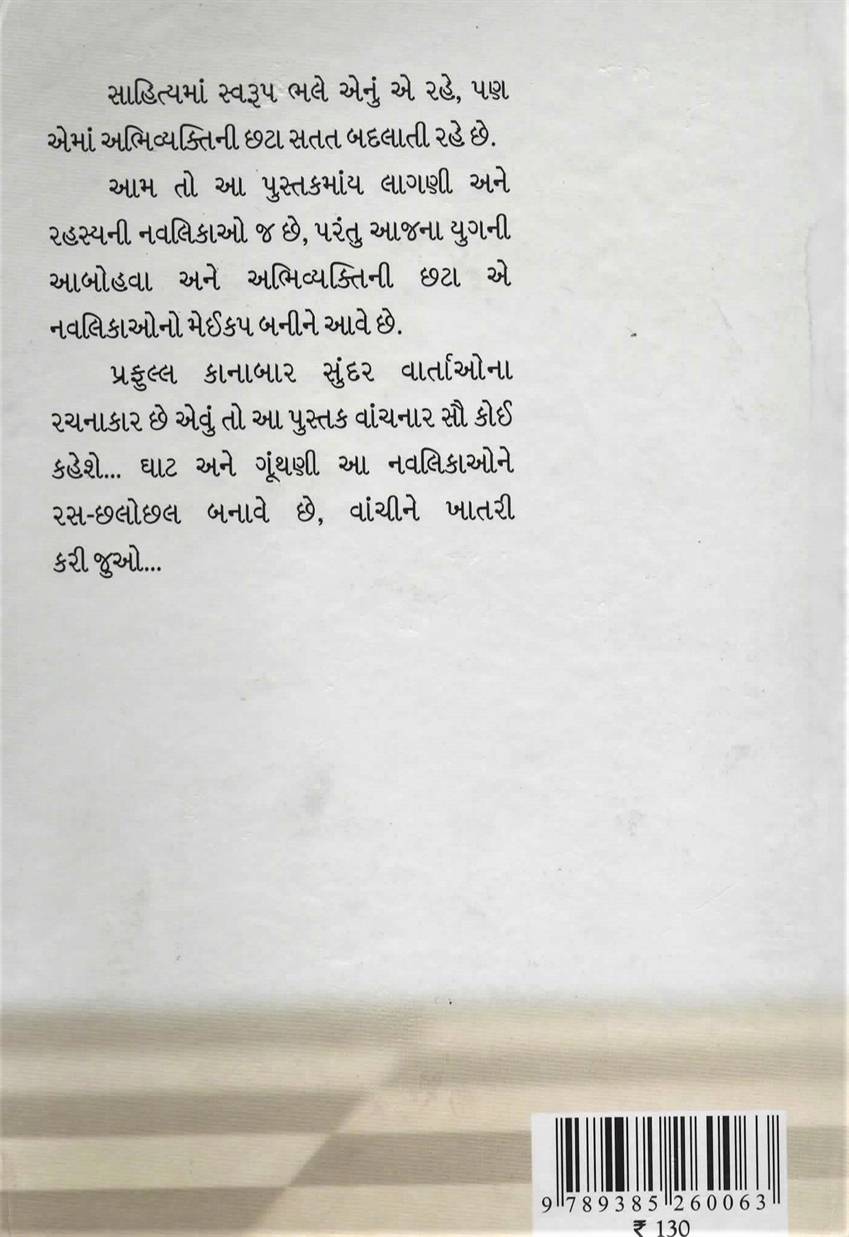 સાહિત્યમાં સ્વરૂપ ભલે એનું એ રહે, પણ
એમાં અભિવ્યક્તિની છટા સતત બદલાતી રહે છે.
આમ તો આ પુસ્તકમાંય લાગણી અને
રહસ્યની નવલિકાઓ જ છે, પરંતુ આજના યુગની
આબોહવા અને અભિવ્યક્તિની છટા એ
નવલિકાઓનો મેઈકપ બનીને આવે છે.
પ્રફુલ્લ કાનાબાર સુંદર વાર્તાઓના
રચનાકાર છે એવું તો આ પુસ્તક વાંચનાર સૌ કોઈ
કહેશે... ઘાટ અને ગૂંથણી આ નવલિકાઓને
રસ-છલોછલ બનાવે છે, વાંચીને ખાતરી
કરી જુઓ...
9 789385 260063
₹ 130